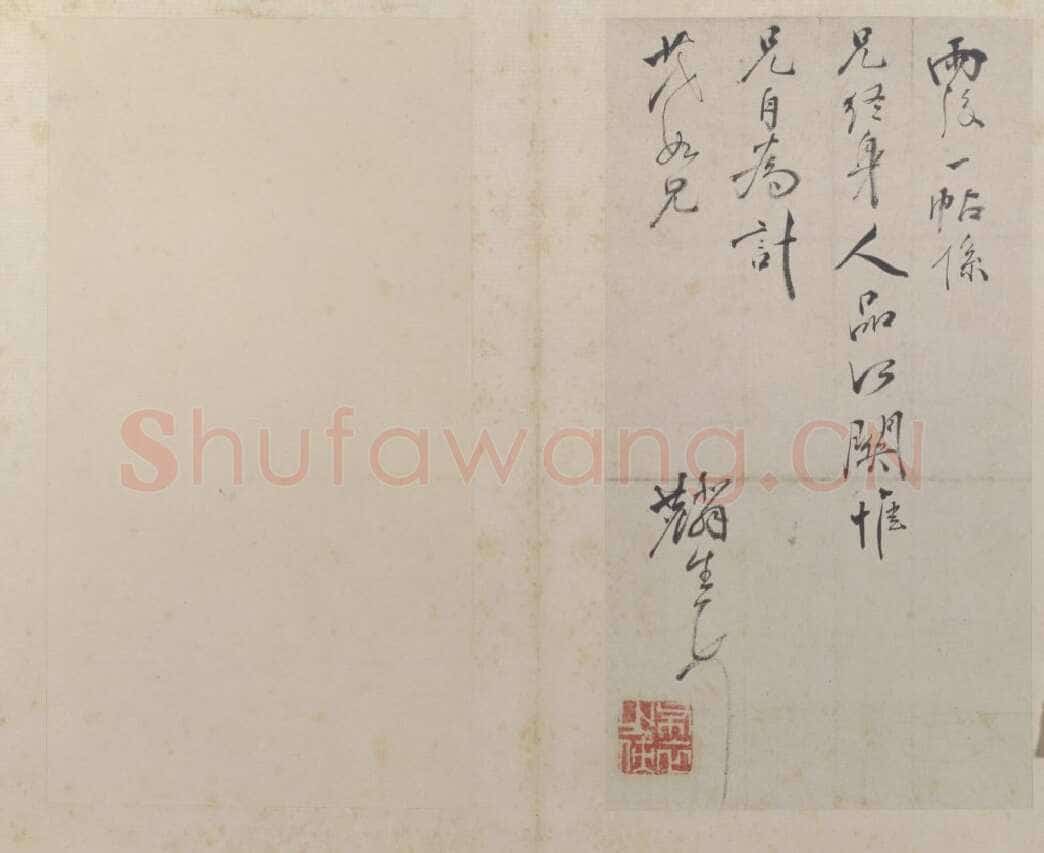 雨後一帖係
兄終身人品所關惟
兄自為計
茂如兄
生
Shufawang.CN